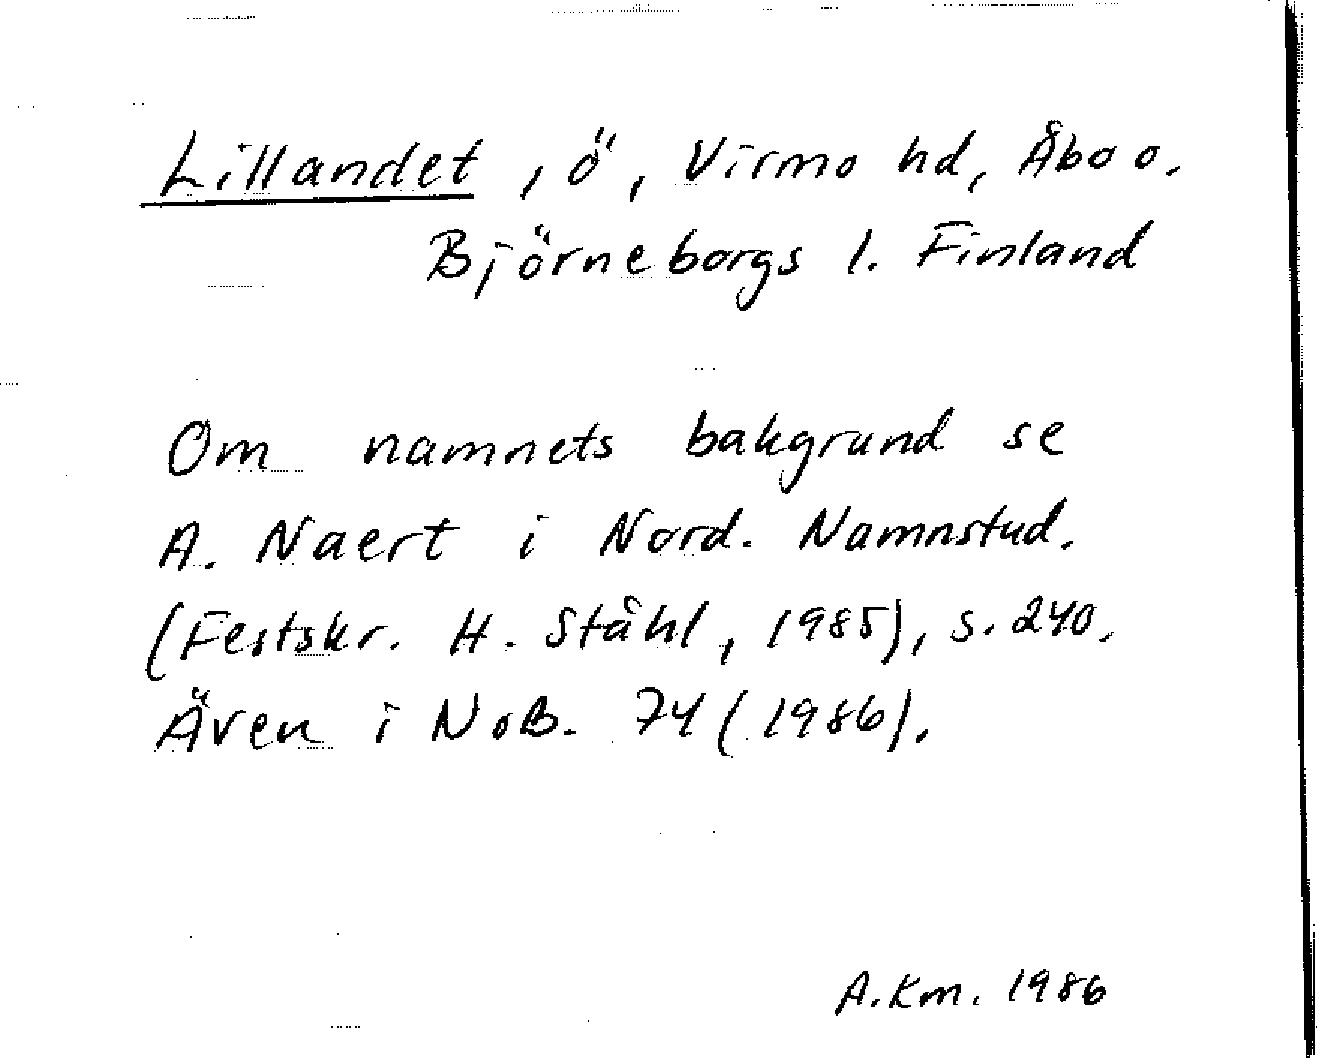 Lillandet, ö, Virmo hd, Åbo o.
Björneborgs l. Finland
Om namnets bakgrund se
A. Naert i Nord. Namnstud.
(Festskr. H. Ståhl, 1985), s. 240.
Även i NoB. 74 (1986).
A.Km. 1986